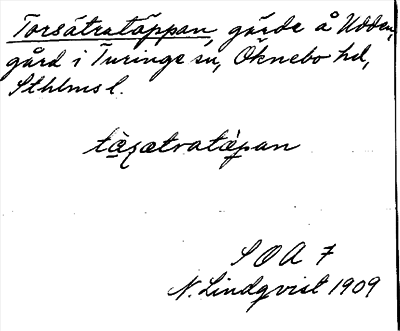 Torsätratäppan, gärde å Udden,
gård i Turinge sn, Öknebo hd,
Sthlms l.
tåsætratàpan
S O A 7
N. Lindqvist 1909